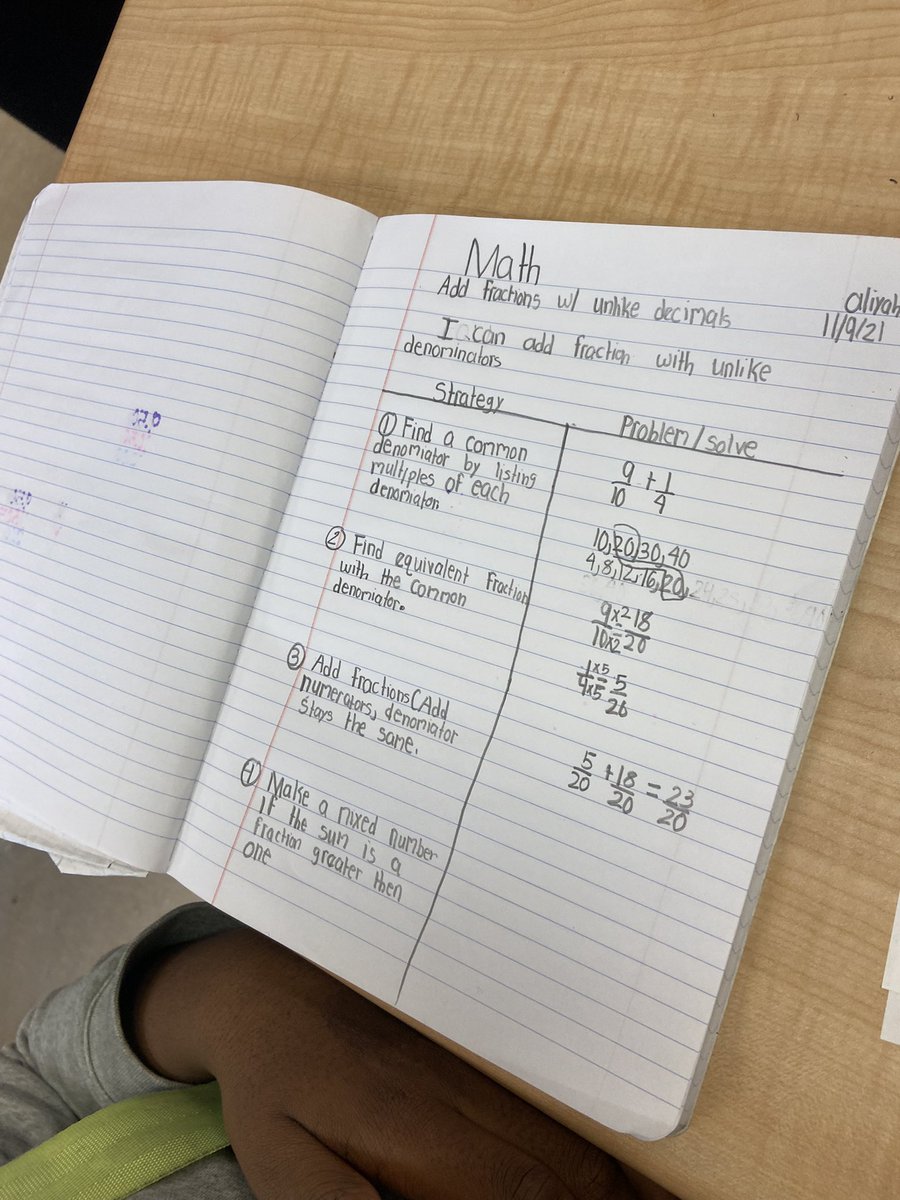 Math
Add fractions w/ unlike decimals
aliyah
11/9/21
I can add fraction with unlike
denominators
Strategy
① Find a common
denomiator by listing
multiples of each
denomiator.
② Find equivalent fraction
with the common
denomiator.
③ Add fractions(Add
numerators, denomiator
stays the same.
④ Make a mixed number
if the sum is a
fraction greater then
one
Problem/solve
9/10 + 1/4
10, 20, 30, 40
4, 8, 12, 16, 20,
9/10 ×2/×2 = 18/20
1/4 ×5/×5 = 5/20
5/20 + 18/20 = 23/20